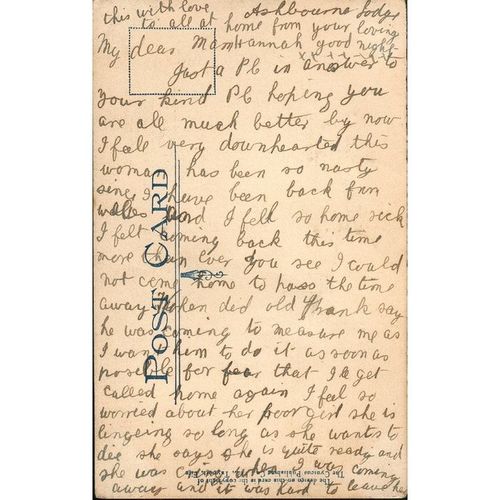 this with love Ashbourne Lodge
to all at home from your loving
My dear Mam Hannah good night
Just a Pc in answer to
x x x x x x x
your kind Pc hoping you
are all much better by now
I feel very downhearted this
woman has been so nasty
sinc I have been back frim
wales and I fell so home sick
I felt coming back this time
more than ever you see I could
not come home to pass the time
away when did old Frank say
he was coming to measure me as
I want him to do it as soon as
possible for fear that I get
called home again I feel so
worried about her poor girl she is
lingeing so long as she wants to
die she says she is quite ready and
she was when I was coming
away and it was hard to leave her
POST CARD
The design on this card is the copyright of
The Publishing